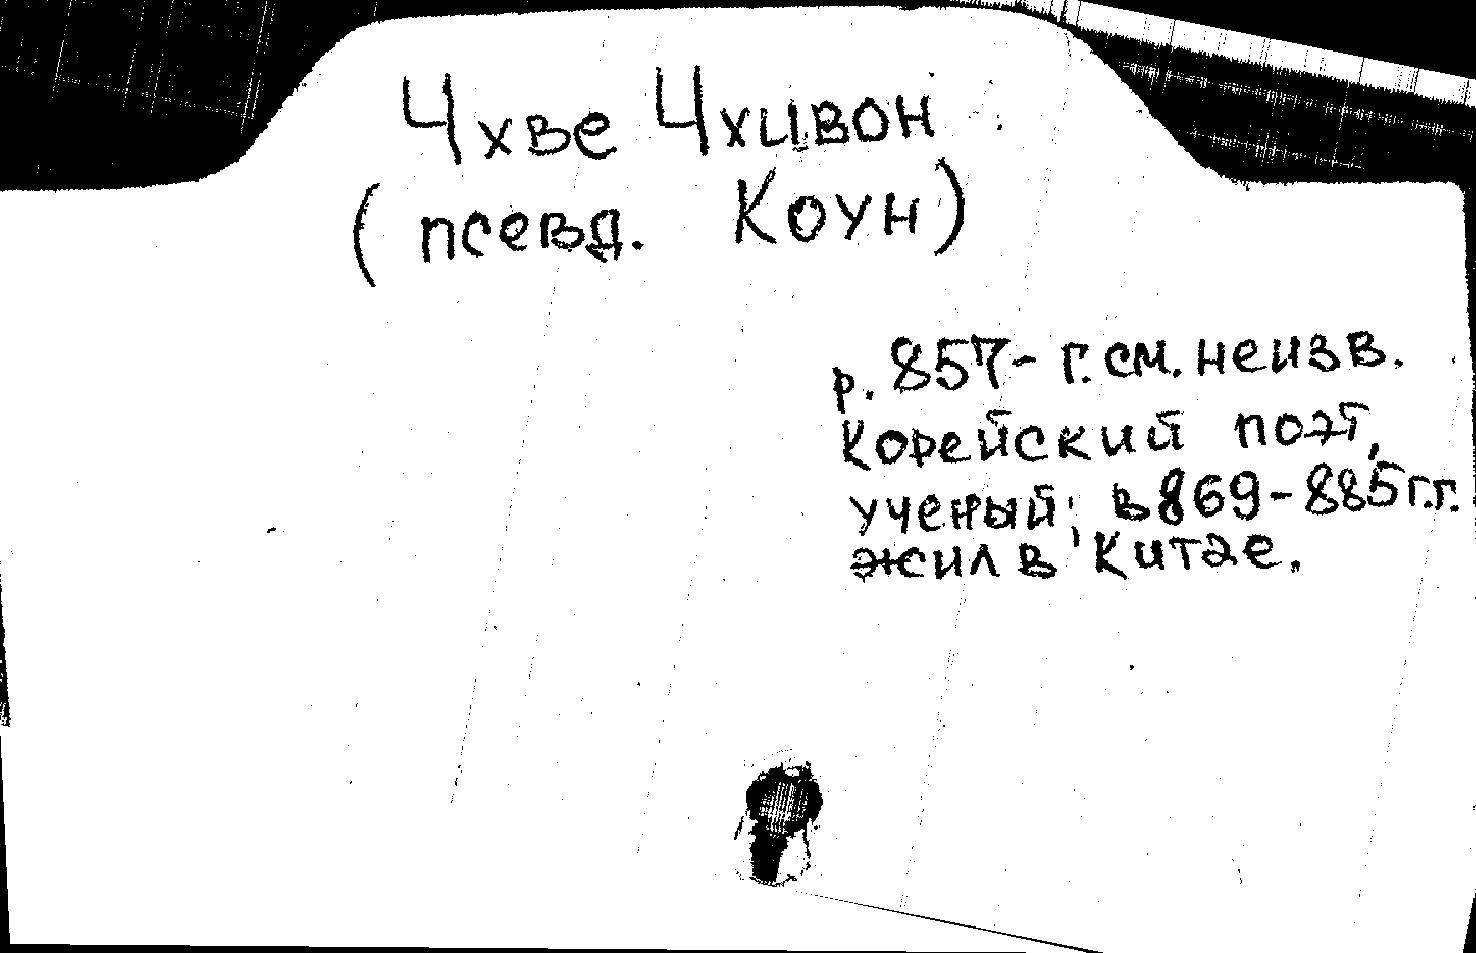 Чхве Чхивон
(псевд. Коун)
р. 857- г.см.неизв.
Корейский поэт,
ученый; в 869-885 г.г.
жил в Китае.